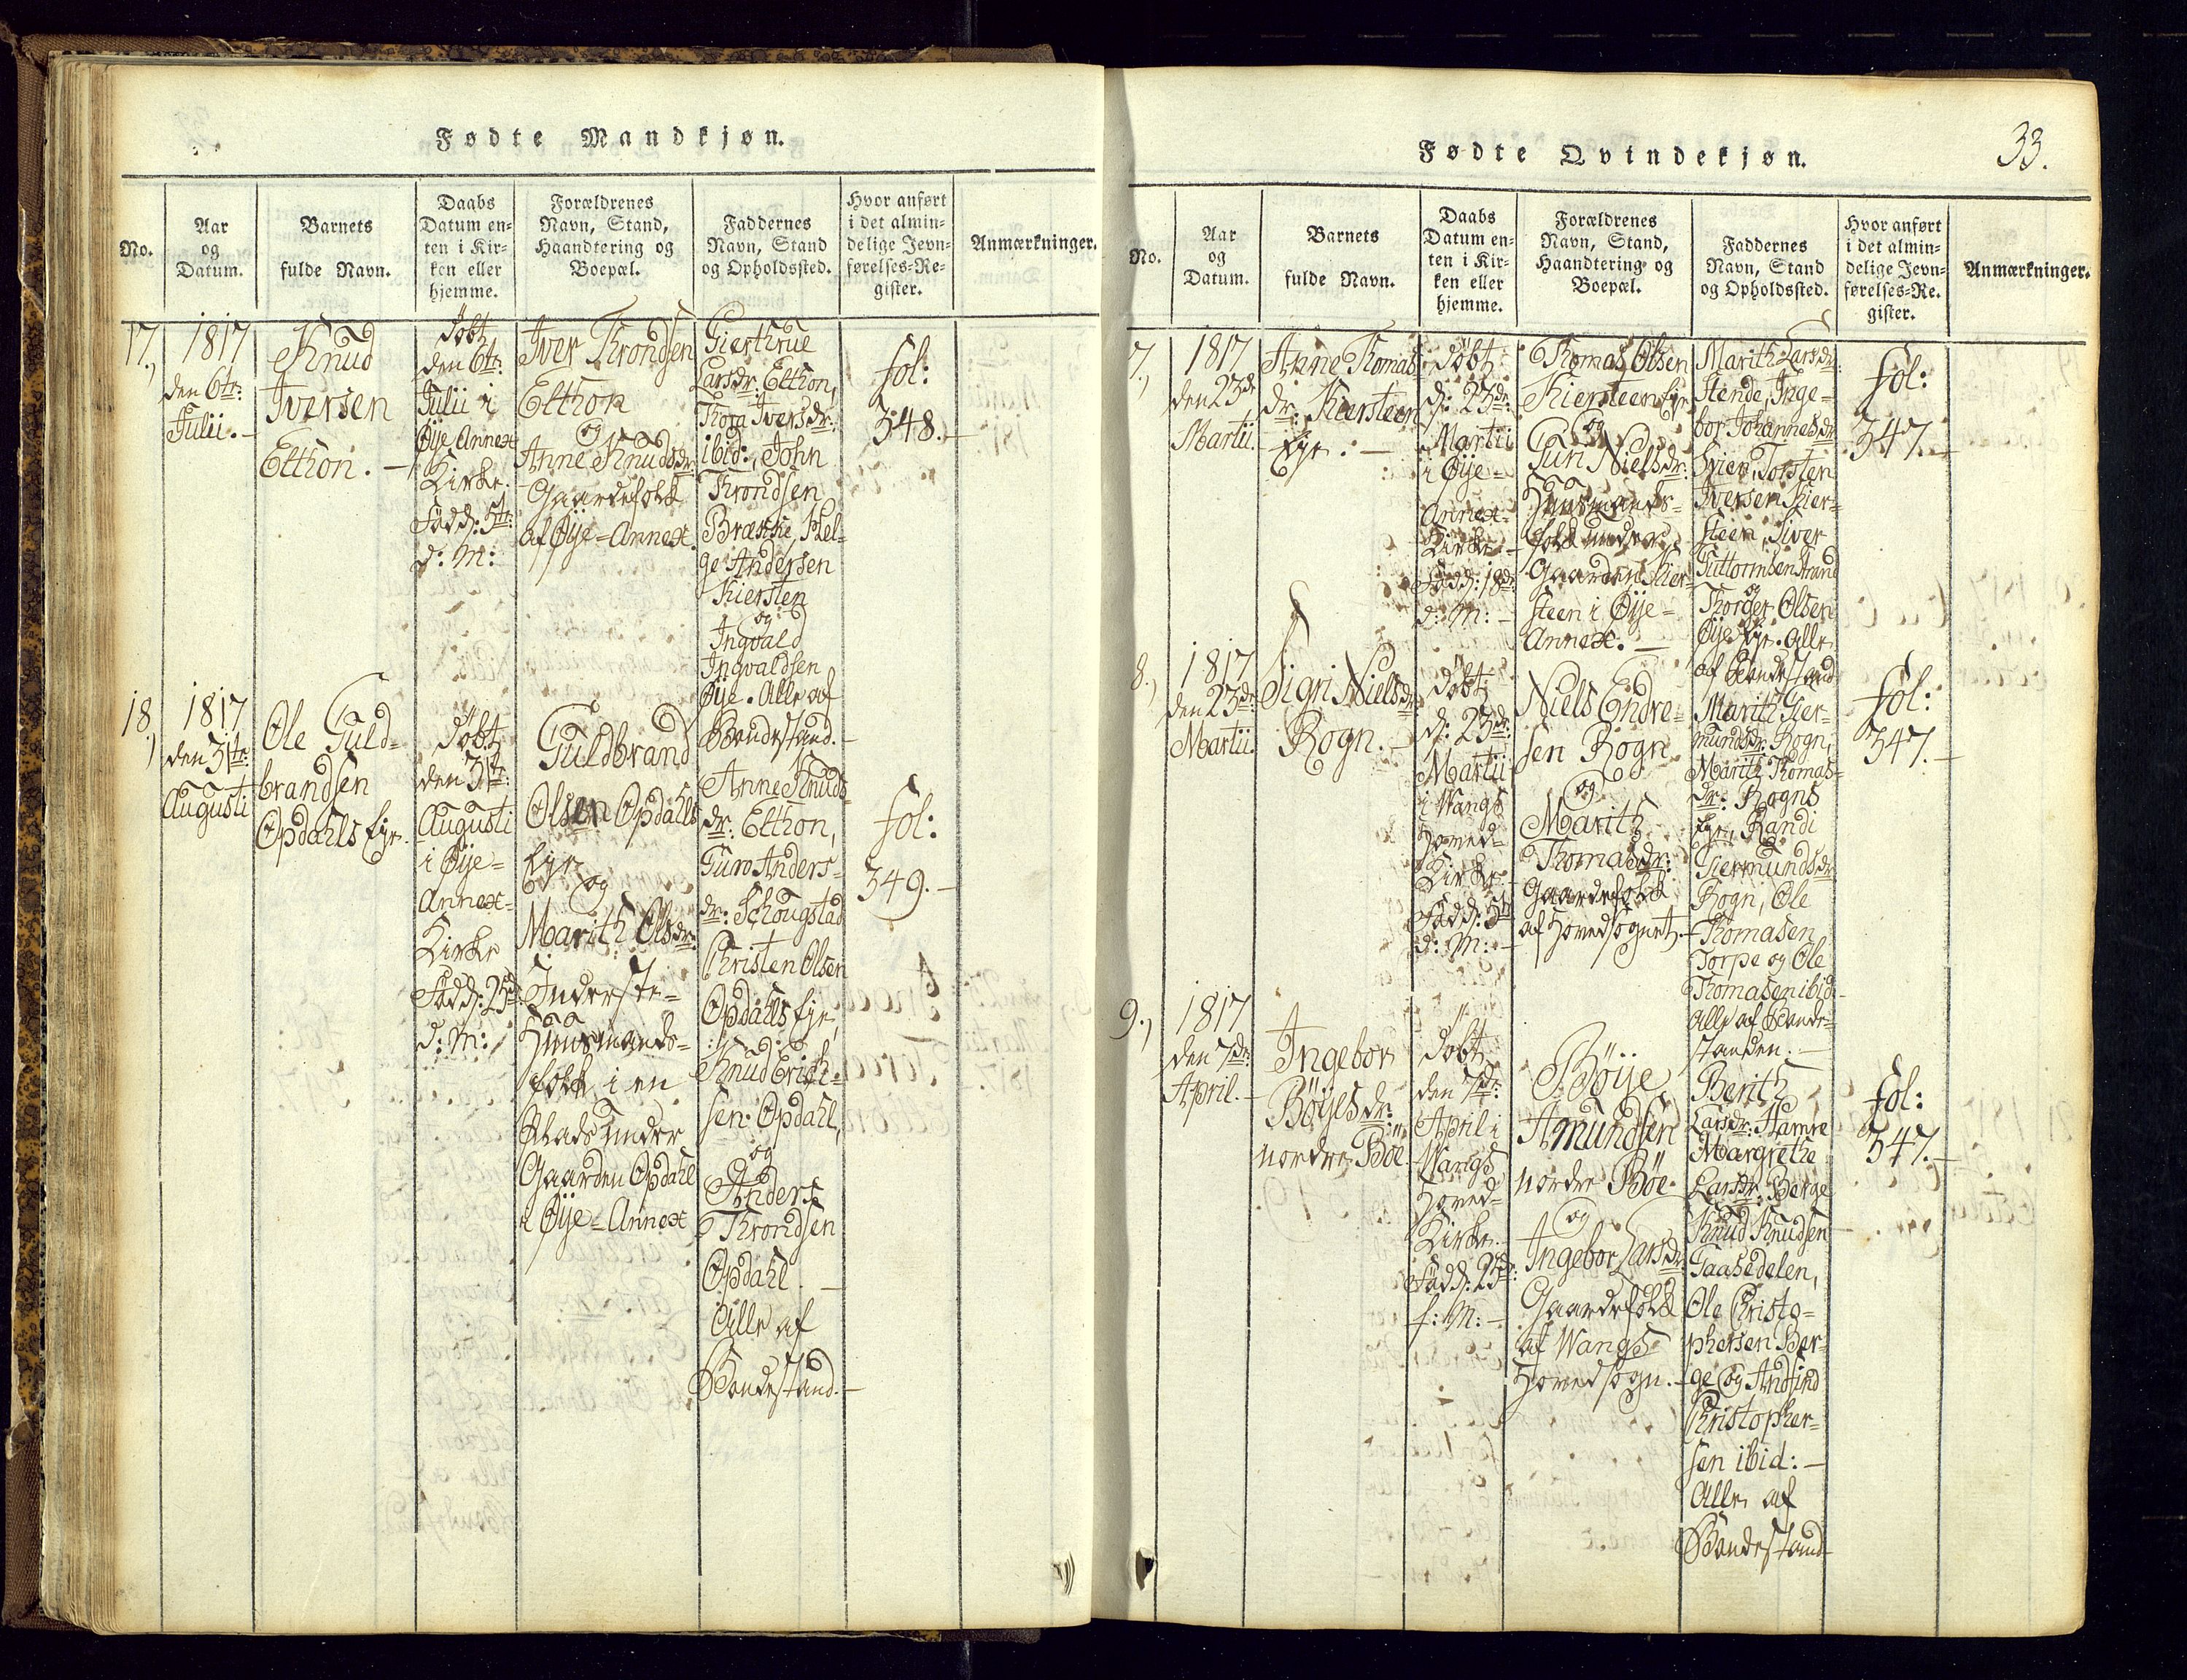 Fødte Mandkjøn.
No.
Aar
og
Datum.
Barnets
fulde Navn.
Daabs
Datum en-
ten i Kir-
ken eller
hjemme.
Forældrenes
Navn, Stand,
Haandtering og
Boepæl.
Faddernes
Navn, Stand
og Opholdssted.
Hvor anført
i det almin-
delige Jevn-
førelses-Re-
gister.
Anmærkninger.
17.,
1817
den 6te:
Julii.-
Knud
Iversen
Elthon.-
döbt
den 6te:
Julii i
Øÿe Annex
Kirke.
Född: 5te:
d: M:
Iver Throndsen
Elthon
og
Anne Knudsdr:
Gaardefolk
af Øÿe-Annex.
Gierthrue
Larsdr: Elthon,
Thora Iversdr:
ibid:, John
Throndsen
Brække, Hel-
ge Andersen
Kiersten
og
Ingvald
Ingvaldsen
Øÿe. Alle af
Bondestand.-
fol:
348.-
18.,
1817
den 31te:
Augusti
Ole Guld-
brandsen
Opdahls Eÿe.
döbt
den 31te:
Augusti
i Øÿe-
Annex-
Kirke
Född: 25de
d: M:
Guldbrand
Olsen Opdahls
Eÿe
og
Marith Olsdr:
Inderste-
Huusmands-
folk i en
Plads under
Gaarden Opdahl
i Øÿe-Annex
Anne Knuds-
dr: Elthon,
Guro Anders-
dr: Schougstad
Christen Olsen
Opdahls Eÿe,
Knud Erich-
sen Opdahl,
og
Anders
Throndsen
Opdahl.-
Alle af
Bondestand.-
fol:
349.-
Fødte Qvindekjøn.
33.
No.
Aar
og
Datum.
Barnets
fulde Navn.
Daabs
Datum en-
ten i Kir-
ken eller
hjemme.
Forældrenes
Navn, Stand,
Haandtering og
Boepæl.
Faddernes
Navn, Stand
og Opholdssted.
Hvor anført
i det almin-
delige Jevn-
førelses-Re-
gister.
Anmærkninger.
7.,
1817
den 23de
Martii.
Anne Thomas-
dr: Kiersteen
Eÿe.-
döbt
d: 23de:
Martii
i Øÿe-
Annex-
Kirke.-
Född: 18de:
d: M:-
Thomas Olsen
Kiersteens Eÿe
og
Gun Nielsdr:
Huusmands-
folk under
Gaarden Kier-
steen i Øÿe-
Annex.-
Marith Larsdr:
Stende, Inge-
bor Johannesdr:
Qvien, Torsten
Iversen Kier-
steen, Siver
Guttormsen Strand
og
Thorger Olsen
Øÿes Eÿe. Alle
af Bondestand
fol:
347.-
8.,
1817
den 23de:
Martii.
Sigri Nielsdr:
Rogn.-
döbt
d: 23de:
Martii
i Wangs
Hoved-
Kirke.-
Född: 5te
d: M:-
Niels Endre-
sen Rogn
og
Marith
Thomasdr:
Gaardefolk
af Hovedsognet.-
Marith Gier-
mundsdr: Rogn,
Marith Thomas-
dr: Rogns
Eÿe, Randi
Giermundsdr
Rogn, Ole
Thomasen
Torpe og Ole
Thomasen ibid.
Alle af Bonde-
standen.-
fol:
347.-
9.,
1817
den 7de:
April.-
Ingebor
Böÿesdr:
nordre Böe
döbt
den 7de:
April i
Wangs
Hoved-
Kirke.-
Född: 25de:
f: M:-
Böÿe
Amundsen
nordre Böe
og
Ingebor Larsdr:
Gaardefolk
af Wangs
Hovedsogn.-
Berith
Larsdr: Hamre
Margrethe
Larsdr: Berge
Knud Knudsen
Gaasedelen,
Ole Christo-
phersen Ber-
ge og Andfind
Christopher-
sen ibid:-
Alle af
Bondestand-
fol:
347.-